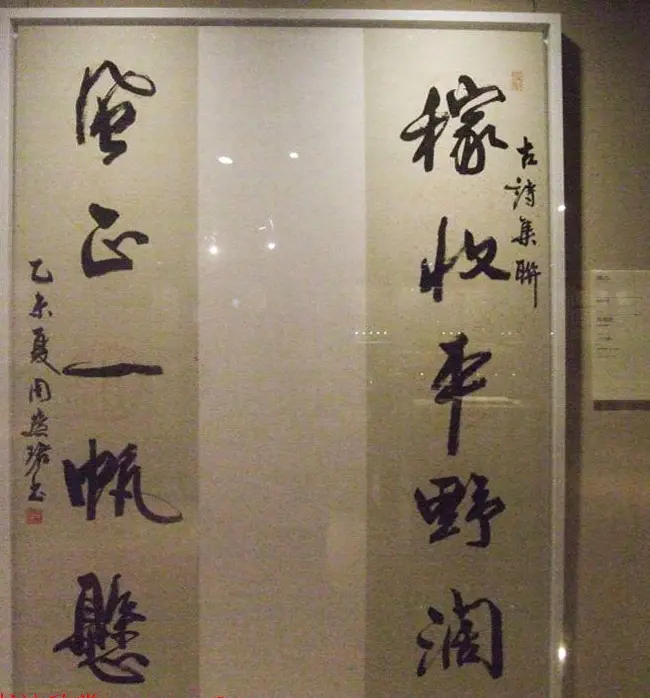 稼收平野阔
古詩集聯
風正一帆懸
乙未夏周慧珺书